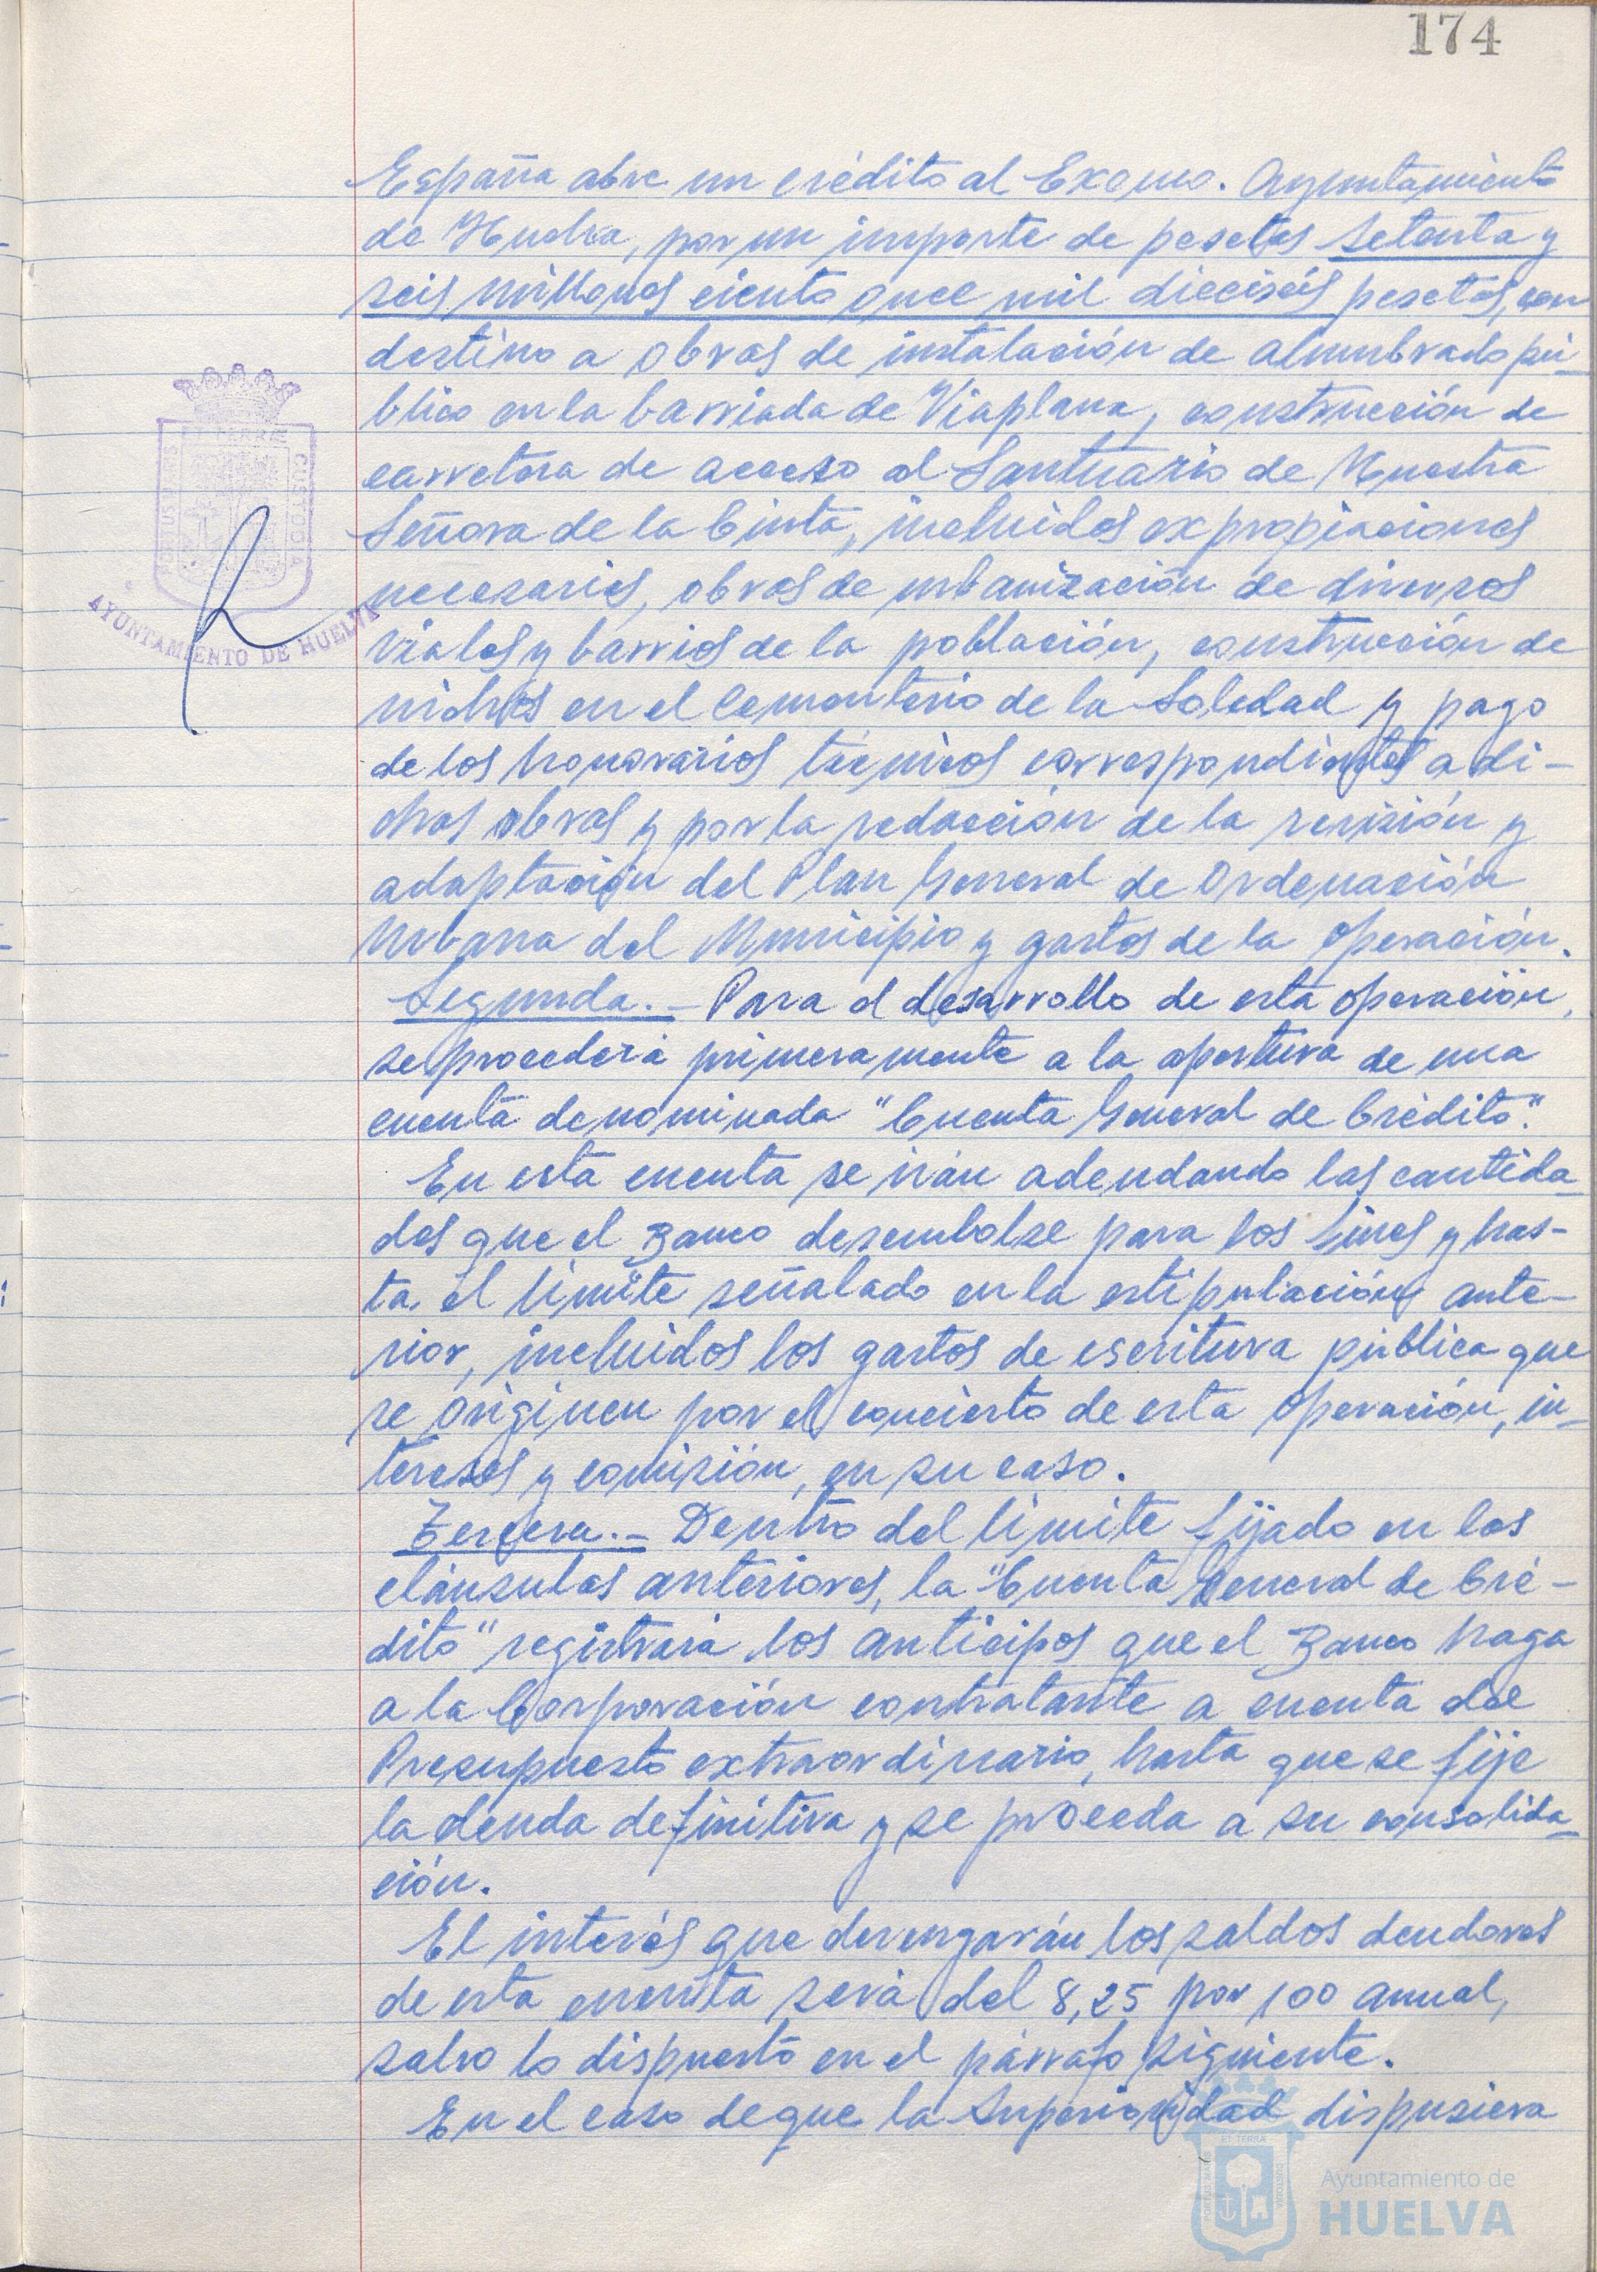 174
España abre un crédito al Excmo. Ayuntamiento
de Huelva, por un importe de pesetas setenta y
seis millones ciento once mil dieciséis pesetas, con
destino a obras de instalación de alumbrado pú-
blico en la barriada de Viaplana, construcción de
carretera de acceso al Santuario de Nuestra
Señora de la Cinta, incluidas expropiaciones
necesarias, obras de urbanización de diversos
viales y barrios de la población, construcción de
nichos en el Cementerio de la Soledad y pago
de los honorarios técnicos correspondientes a di-
chas obras y por la redacción de la revisión y
adaptación del Plan General de Ordenación
Urbana del Municipio y gastos de la operación.
Segunda.- Para el desarrollo de esta operación,
se procederá primeramente a la apertura de una
cuenta denominada "Cuenta General de Crédito".
En esta cuenta se irán adeudando las cantida-
des que el Banco desembolse para los fines y has-
ta el límite señalado en la estipulación ante-
rior, incluidos los gastos de escritura pública que
se originen por el concierto de esta operación, in-
tereses y comisión, en su caso.
Tercera.- Dentro del límite fijado en las
cláusulas anteriores, la "Cuenta General de Cré-
dito" registrará los anticipos que el Banco haga
a la Corporación contratante a cuenta del
Presupuesto extraordinario, hasta que se fije
la deuda definitiva y se proceda a su consolida-
ción.
El interés que devengarán los saldos deudores
de esta cuenta será del 8,25 por 100 anual,
salvo lo dispuesto en el párrafo siguiente.
En el caso de que la Superioridad dispusiera
PORTUS MARIS
ET TERRÆ
CUSTODIA
AYUNTAMIENTO DE HUELVA
Ayuntamiento de
HUELVA